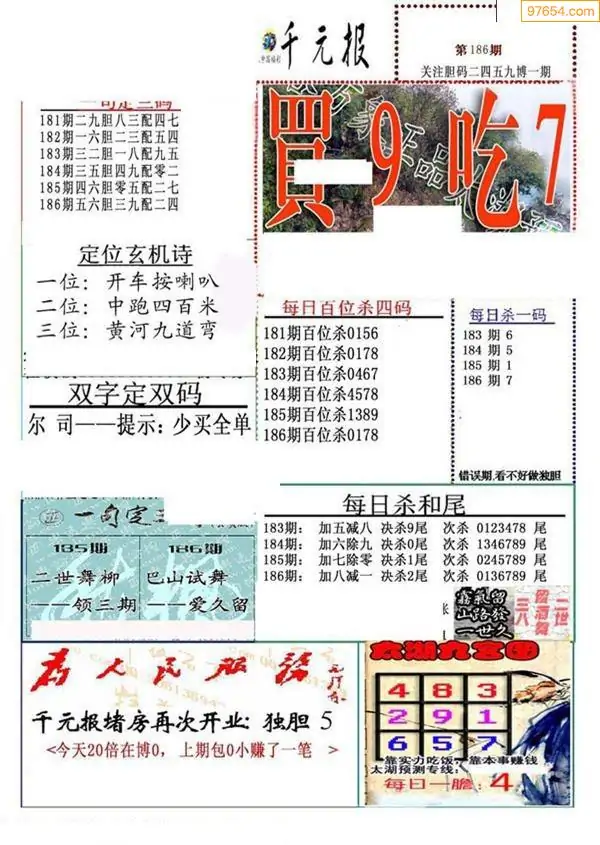 97654.com
千元报
第186期
关注胆码二四五九博一期
一句定三码
181期二九胆八三配四七
182期一六胆二三配五四
183期三二胆一八配九五
184期三五胆四九配零二
185期四六胆零五配二七
186期五六胆三九配二四
買9吃7
定位玄机诗
一位：开车按喇叭
二位：中跑四百米
三位：黄河九道弯
每日百位杀四码
181期百位杀0156
182期百位杀0178
183期百位杀0467
184期百位杀4578
185期百位杀1389
186期百位杀0178
每日杀一码
183 期 6
184 期 5
185 期 1
186 期 7
错误期,看不好做独胆
双字定双码
尔 司——提示：少买全单
一句定三
185期
二世舞柳
——领三期
186期
巴山试舞
——爱久留
每日杀和尾
183期： 加五减八 决杀9尾 次杀 0123478 尾
184期： 加六除九 决杀0尾 次杀 1346789 尾
185期： 加七除零 决杀1尾 次杀 0245789 尾
186期： 加八减一 决杀2尾 次杀 0136789 尾
为人民服务
千元报堵房再次开业：独胆 5
<今天20倍在博0，上期包0小赚了一笔 >
太湖九宫图
4 8 3
2 9 1
6 5 7
靠实力吃饭，靠本事赚钱
太湖预测专线：
每日一胆：4